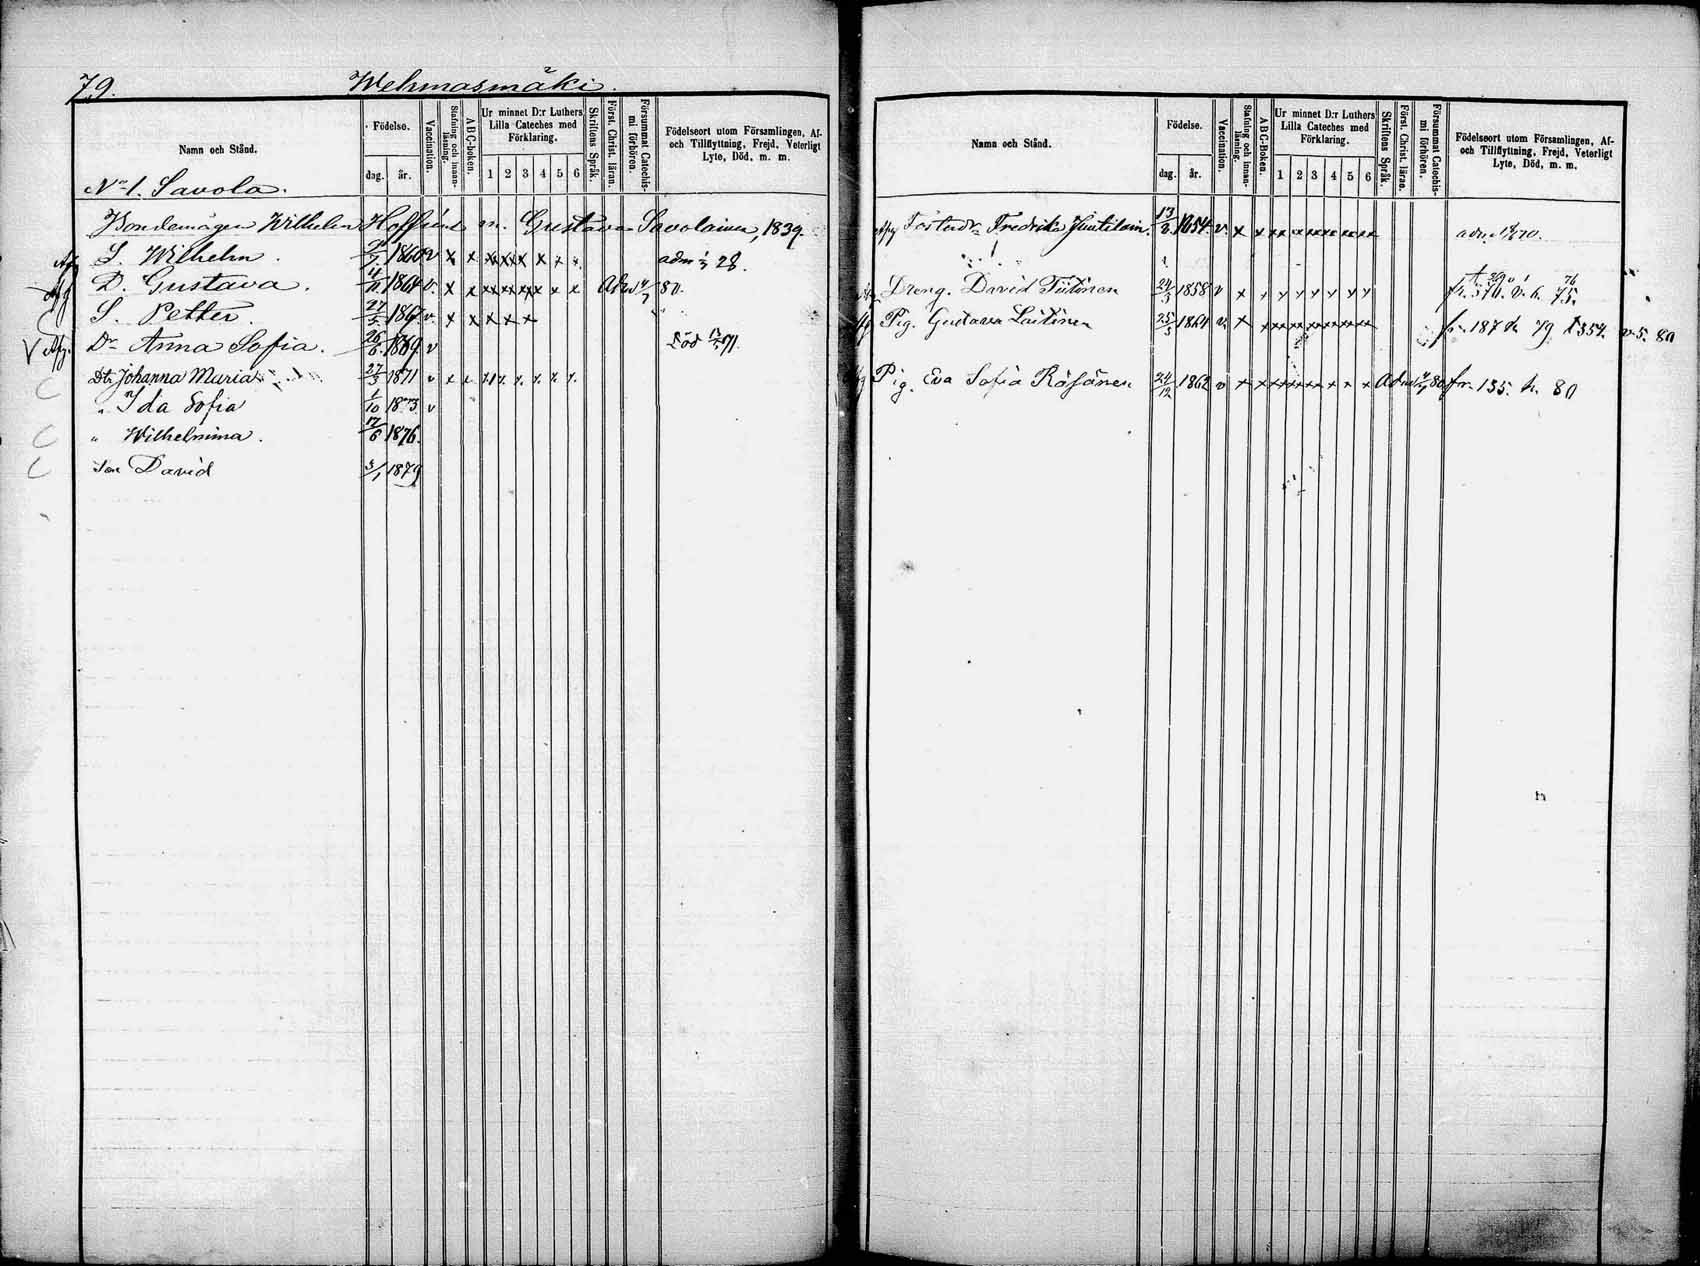 79. Wehmasmäki.
Namn och Stånd.
Födelse.
dag. år.
Vaccination.
Stafning och innanläsning.
ABC-boken.
Ur minnet D:r Luthers Lilla Cateches med Förklaring.
1 2 3 4 5 6
Skriftens Språk.
Först. Christ. läran.
Försummat Catechismi förhören.
Födelseort utom Församlingen, Af- och Tillflyttning, Frejd, Veterligt Lyte, Död, m. m.
No 1. Savola.
Bondemågen Wilhelm Hoffrént m. Gustava Savolainen, 1839.
S. Wilhelm. 1860 v x x x x x x x x adm 28.
D. Gustava. 4/11 1864 v. x x x x x x x x Adm 4/7 80.
S. Petter. 27/5 1867 v. x x x x x
Dr Anna Sofia. 26/6 1869. v Död 71.
Dtr Johanna Maria 27/3 1871 v x x x x x x x x
" Ida Sofia 1/10 1873. v
" Wilhelmina. 17/6 1876.
Son David 3/1 1879
Namn och Stånd.
Födelse.
dag. år.
Vaccination.
Stafning och innanläsning.
ABC-Boken.
Ur minnet D:r Luthers Lilla Cateches med Förklaring.
1 2 3 4 5 6
Skriftens Språk.
Först. Christ. läran.
Försummat Catechismi förhören.
Födelseort utom Församlingen, Af- och Tillflyttning, Frejd, Veterligt Lyte, Död, m. m.
Fosterdr. Fredrika 13/2 1854. v. x x x x x x x x adm 70.
Dreng. David Tiitinen 24/3 1858 v x x x x x x x x
Pig. Gustava Laitinen 25/3 1864 v. x x x x x x x x fr. 187 h 79 t 354. v. 5. 80
Pig. Eva Sofia Räsänen 24/12 1862 v x x x x x x x x Adm 4/7 80 fr. 135. h. 80